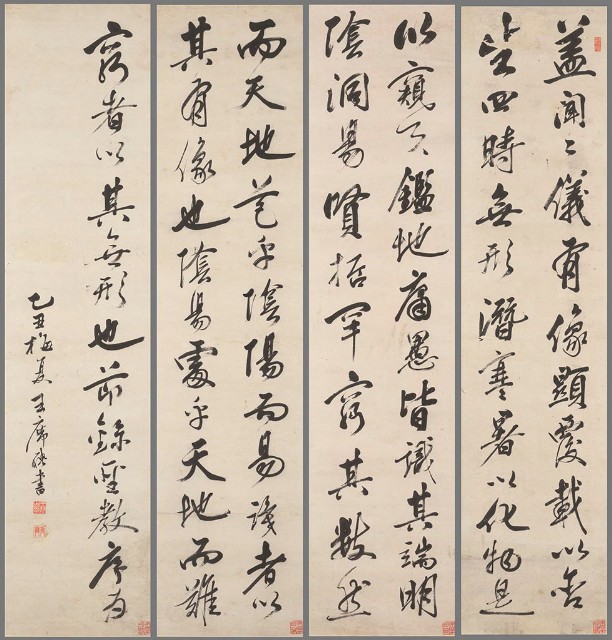 蓋聞二儀有像顯覆載以含
生四時無形潛寒暑以化物是
以窺天鑑地庸愚皆識其端明
陰洞昜賢哲罕窮其數然
而天地苞乎陰陽而易識者以
其有像也陰昜處乎天地而難
窮者以其無形也節錄聖教序為
乙丑梅夏王席書